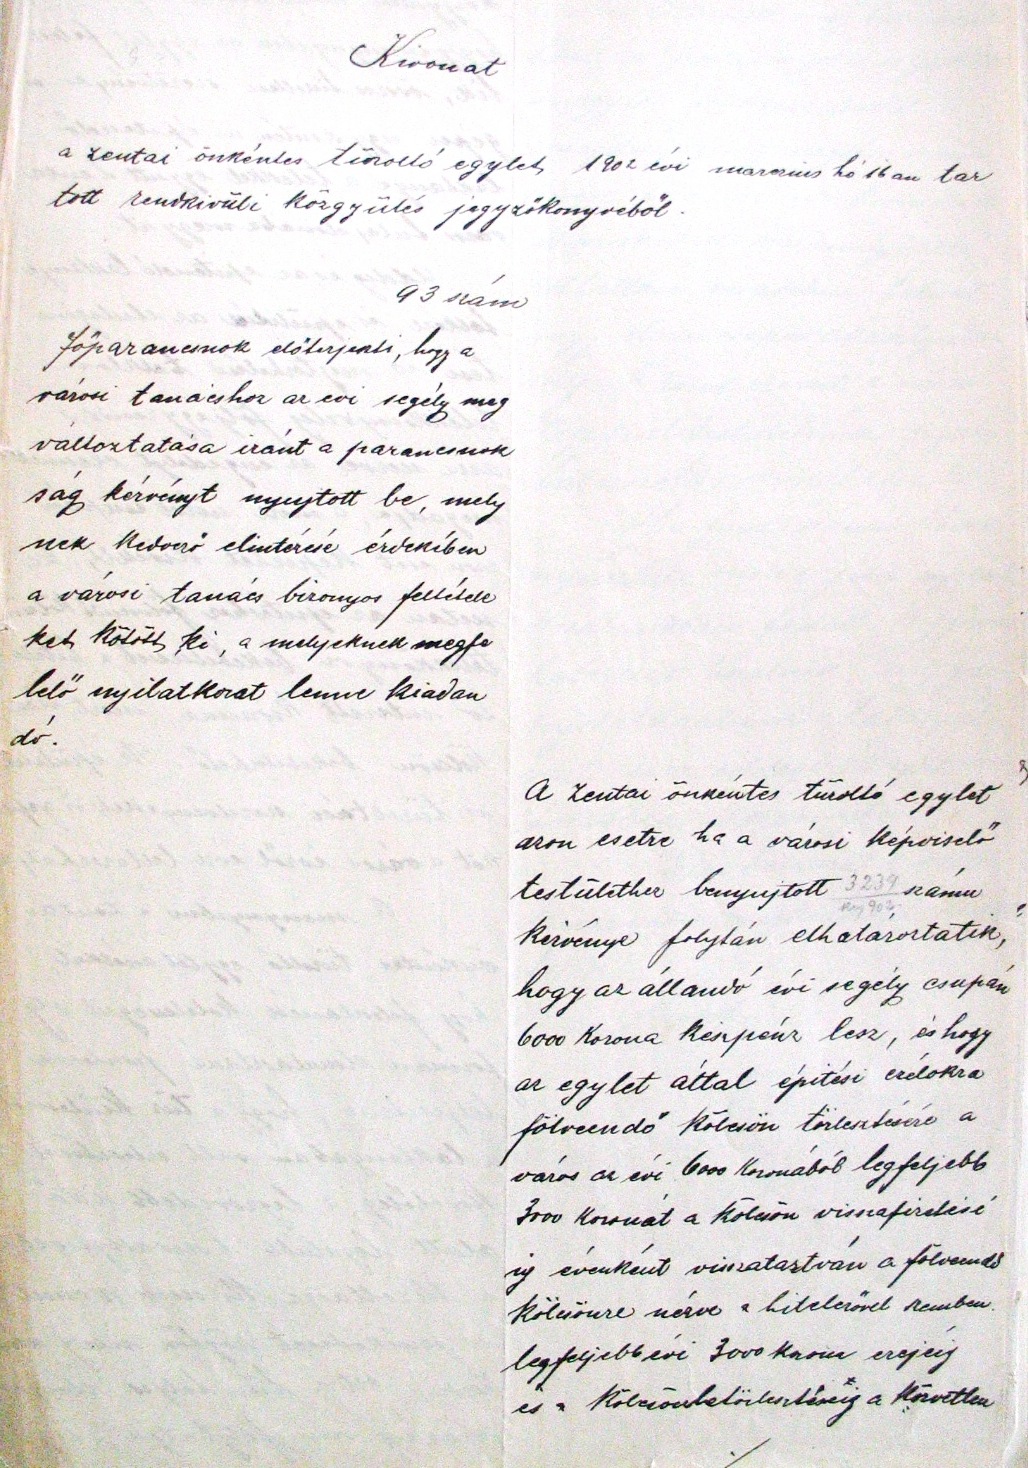 Kivonat
a zentai önkéntes tűzoltó egylet 1902 évi marczius hó 16 an tar
tott rendkivüli közgyülés jegyzőkönyvéből.
93 szám
Főparancsnok előterjeszti, hogy a
városi tanácshoz az évi segély meg
változtatása iránt a parancsnok
ság kérvényt nyujtott be, mely
nek kedvező elintézése érdekében
a városi tanács bizonyos feltétele
ket kötött ki, a melyeknek megfe
lelő nyilatkozat lenne kiadan
dó.
A zentai önkéntes tűzoltó egylet
azon esetre ha a városi képviselő
testülethez benyujtott 3239 számu
kérvénye folytán elhatároztatik,
hogy az állandó évi segély csupán
6000 korona készpénz lesz, és hogy
az egylet által épitési czélokra
fölveendő kölcsön törlesztésére a
város az évi 6000 koronából legfeljebb
3000 koronát a kölcsön visszafizetésé
ig évenként visszatartván a fölveendő
kölcsönre nézve a hitelezővel szemben
legfeljebb évi 3000 korona erejéig
és a kölcsön letörlesztéséig a közvetlen